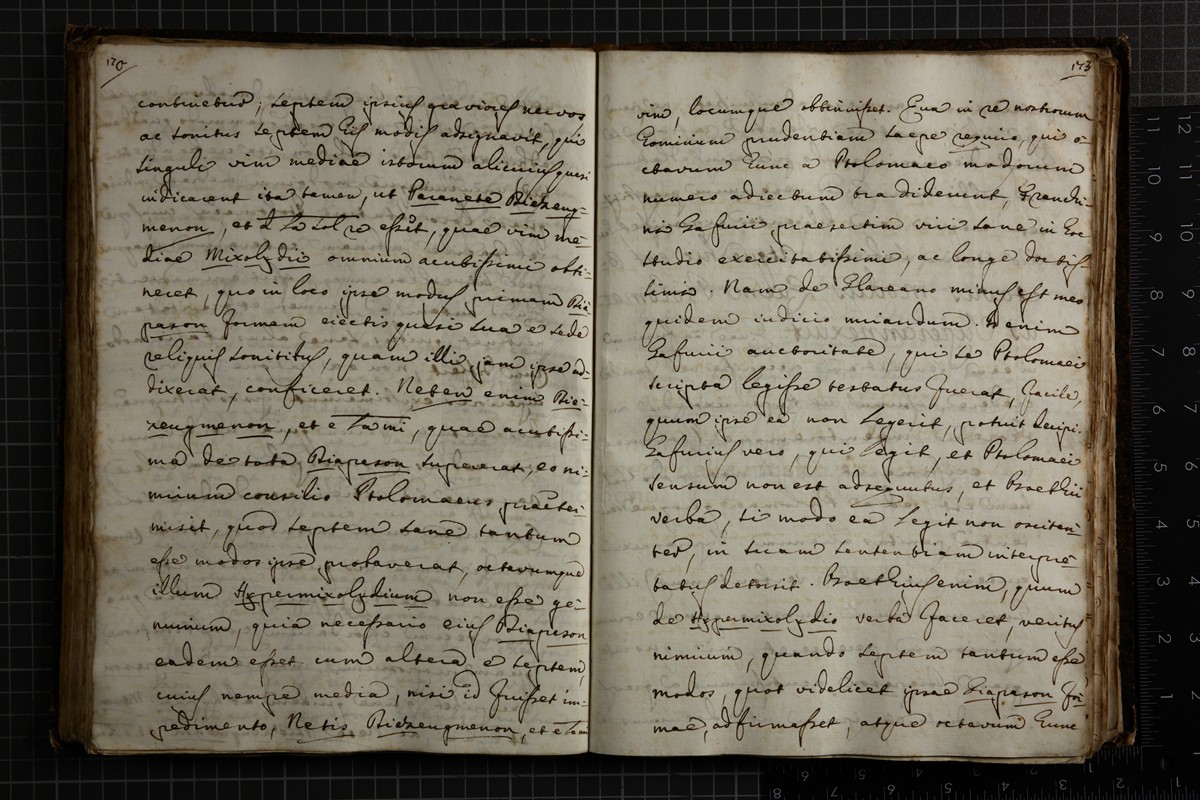 170
continebis; septem ipsius graviores nervos
ac sonitus septem his modis adsignavit, qui
singuli vim mediae istorum alicuius quasi
indicarent ita tamen, ut Paranete Diezeug-
menon, et d la sol re esset, quae vim me-
diae Mixolydio omnium acutissimi obti-
neret, quo in loco ipse modus primam Dia-
pason formam eiectis quasi sua e sede
reliquis sonitibus, quam illi jam ipse ad-
dixerat, conficeret. Neten enim Die-
zeugmenon, et e la mi, quae acutissi-
ma de tota Diapason supererat, eo ni-
mirum consilio Ptolomaeus praeter-
misit, quod septem sane tantum
esse modos ipse putaverat, octavumque
illum Hypermixolydium non esse ge-
nuinum, quia necessario eius Diapason
eadem esset cum altera e septem,
cuius nempe media, nisi id fuisset im-
pedimento, Netis Diezeugmenon, et e la mi
173
vim, locumque obtinuisset. Qua in re nostrorum
hominum prudentiam saepe requiro, qui o-
ctavum hunc a Ptolomaeo modorum
numero adiectum tradiderunt, Franchi-
ni Gafurii praesertim viri sane in hoc
studio exercitatissimi, ac longe doctis-
simi. Nam de Glareano minus est meo
quidem iudicio mirandum. Is enim
Gafurii auctoritate, qui se Ptolomaei
scripta legisse testatus fuerat, facile,
quum ipse ea non legerit, potuit decipi.
Gafurius vero, qui legit, et Ptolomaei
sensum non est adsequutus, et Boethii
verba, si modo ea legit non oscitan-
ter, in suam sententiam interpre-
tatus detorsit. Boethius enim, quum
de Hypermixolydio verba faceret, veritus
nimium, quando septem tantum esse
modos, quot videlicet ipsae Diapason for-
mae, adfirmasset, atque octavum hunc